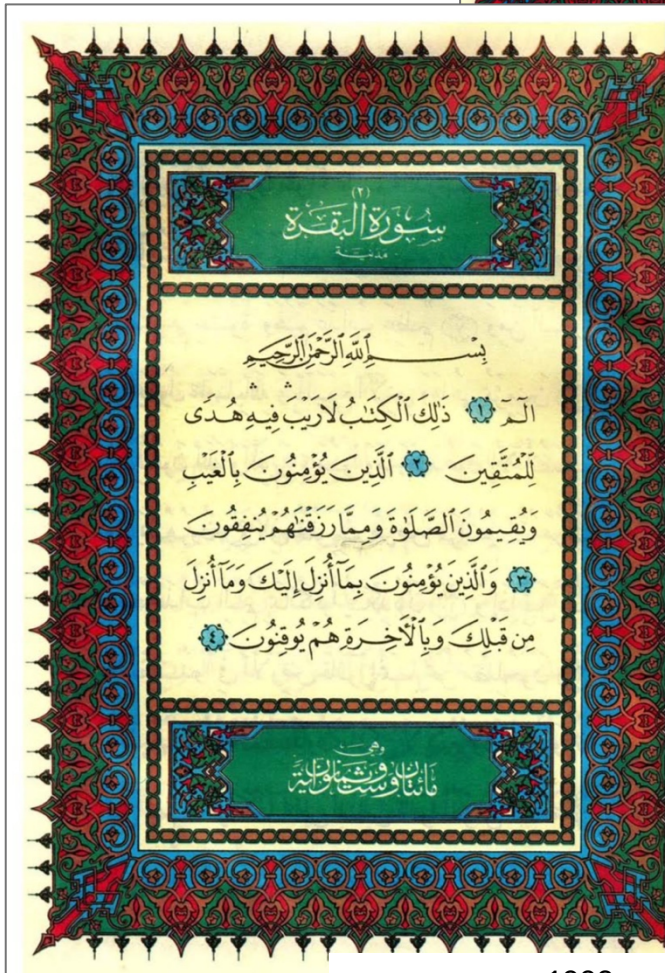 (٢)
سُورَةُ الْبَقَرَةِ
مدنية
بِسْمِ ٱللَّهِ ٱلرَّحْمَٰنِ ٱلرَّحِيمِ
الٓمٓ ١ ذَٰلِكَ ٱلْكِتَٰبُ لَا رَيْبَ ۛ فِيهِ ۛ هُدًى
لِّلْمُتَّقِينَ ٢ ٱلَّذِينَ يُؤْمِنُونَ بِٱلْغَيْبِ
وَيُقِيمُونَ ٱلصَّلَوٰةَ وَمِمَّا رَزَقْنَٰهُمْ يُنفِقُونَ
٣ وَٱلَّذِينَ يُؤْمِنُونَ بِمَآ أُنزِلَ إِلَيْكَ وَمَآ أُنزِلَ
مِن قَبْلِكَ وَبِٱلْءَاخِرَةِ هُمْ يُوقِنُونَ ٤
وهي
مائتان وست وثمانون آية